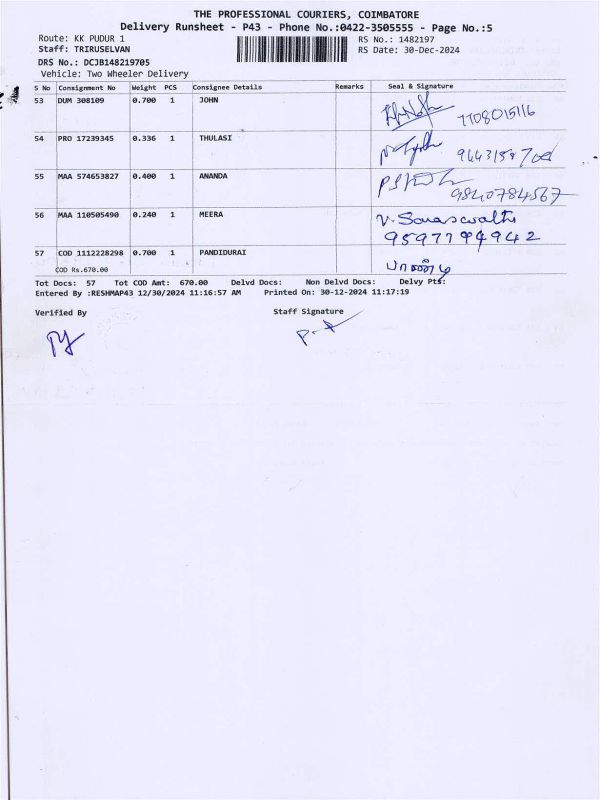 THE PROFESSIONAL COURIERS, COIMBATORE
Delivery Runsheet - P43 - Phone No.:0422-3505555 - Page No.:5
Route: KK PUDUR 1 RS No.: 1482197
Staff: TRIRUSELVAN RS Date: 30-Dec-2024
DRS No.: DCJB148219705
Vehicle: Two Wheeler Delivery
S No Consignment No Weight PCS Consignee Details Remarks Seal & Signature
53 DUM 308109 0.700 1 JOHN
7708015116
54 PRO 17239345 0.336 1 THULASI
55 MAA 574653827 0.400 1 ANANDA
9840784567
56 MAA 110505490 0.240 1 MEERA V. Saraswathi
9597794942
57 COD 1112228298 0.700 1 PANDIDURAI
COD Rs.670.00
Tot Docs: 57 Tot COD Amt: 670.00 Delvd Docs: Non Delvd Docs: Delvy Pts:
Entered By :RESHMAP43 12/30/2024 11:16:57 AM Printed On: 30-12-2024 11:17:19
Verified By Staff Signature